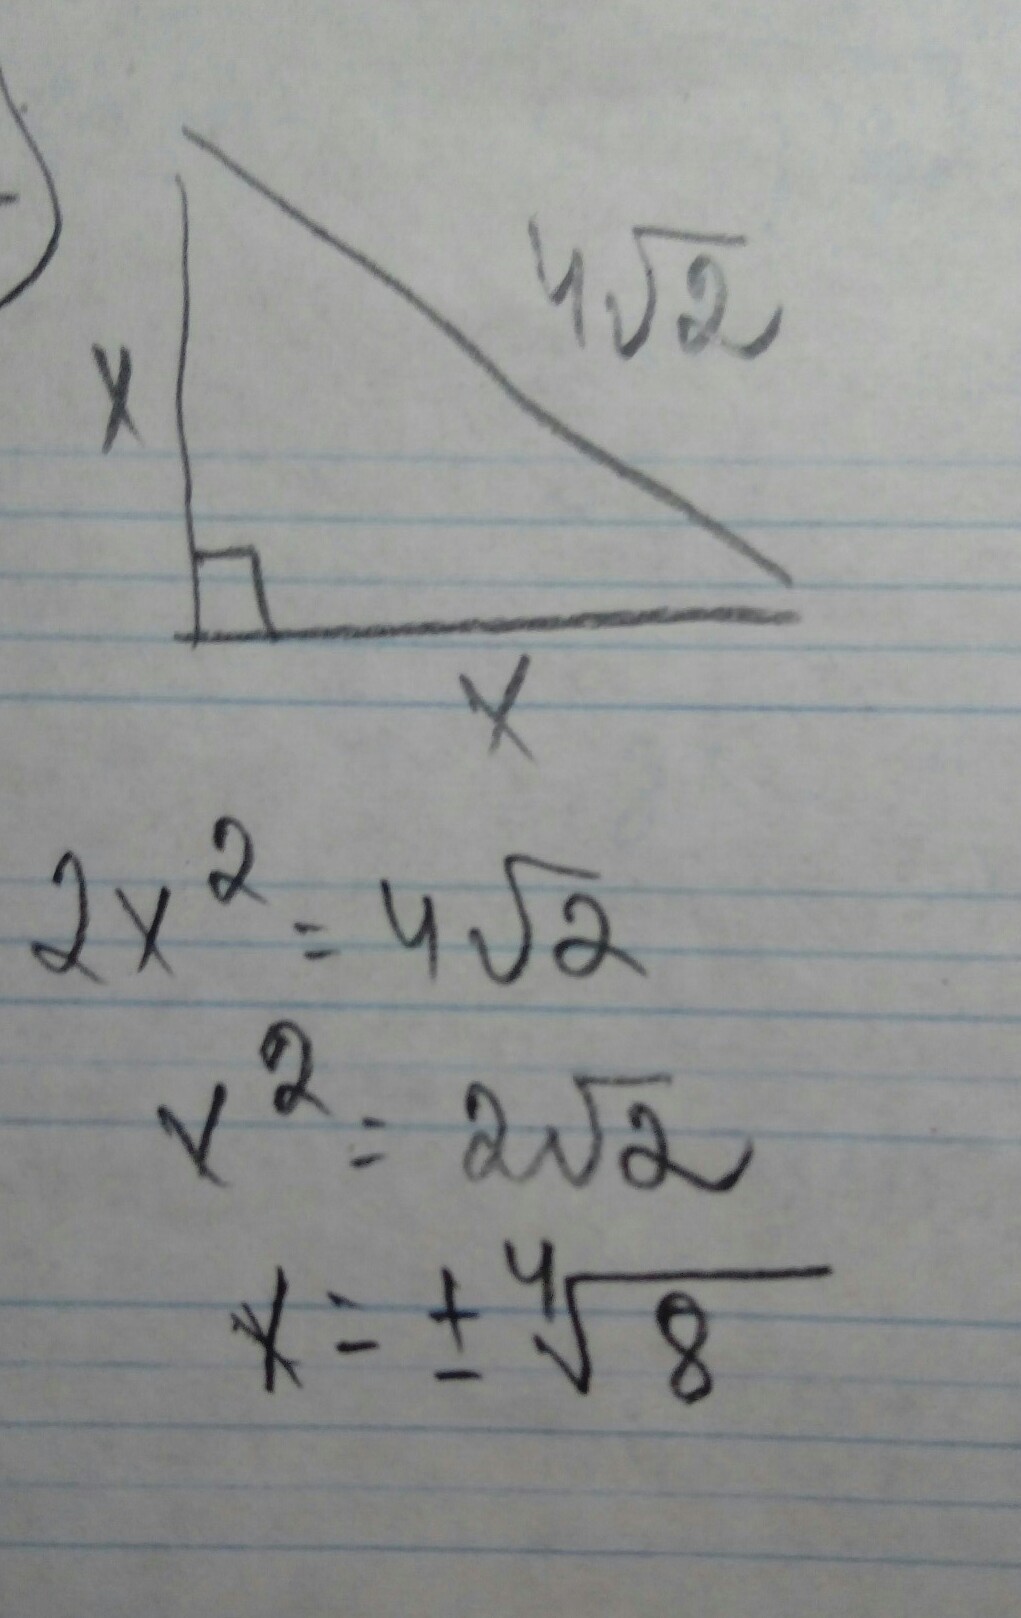 4√2
x
x
2x² = 4√2
x² = 2√2
x = ± ∜8